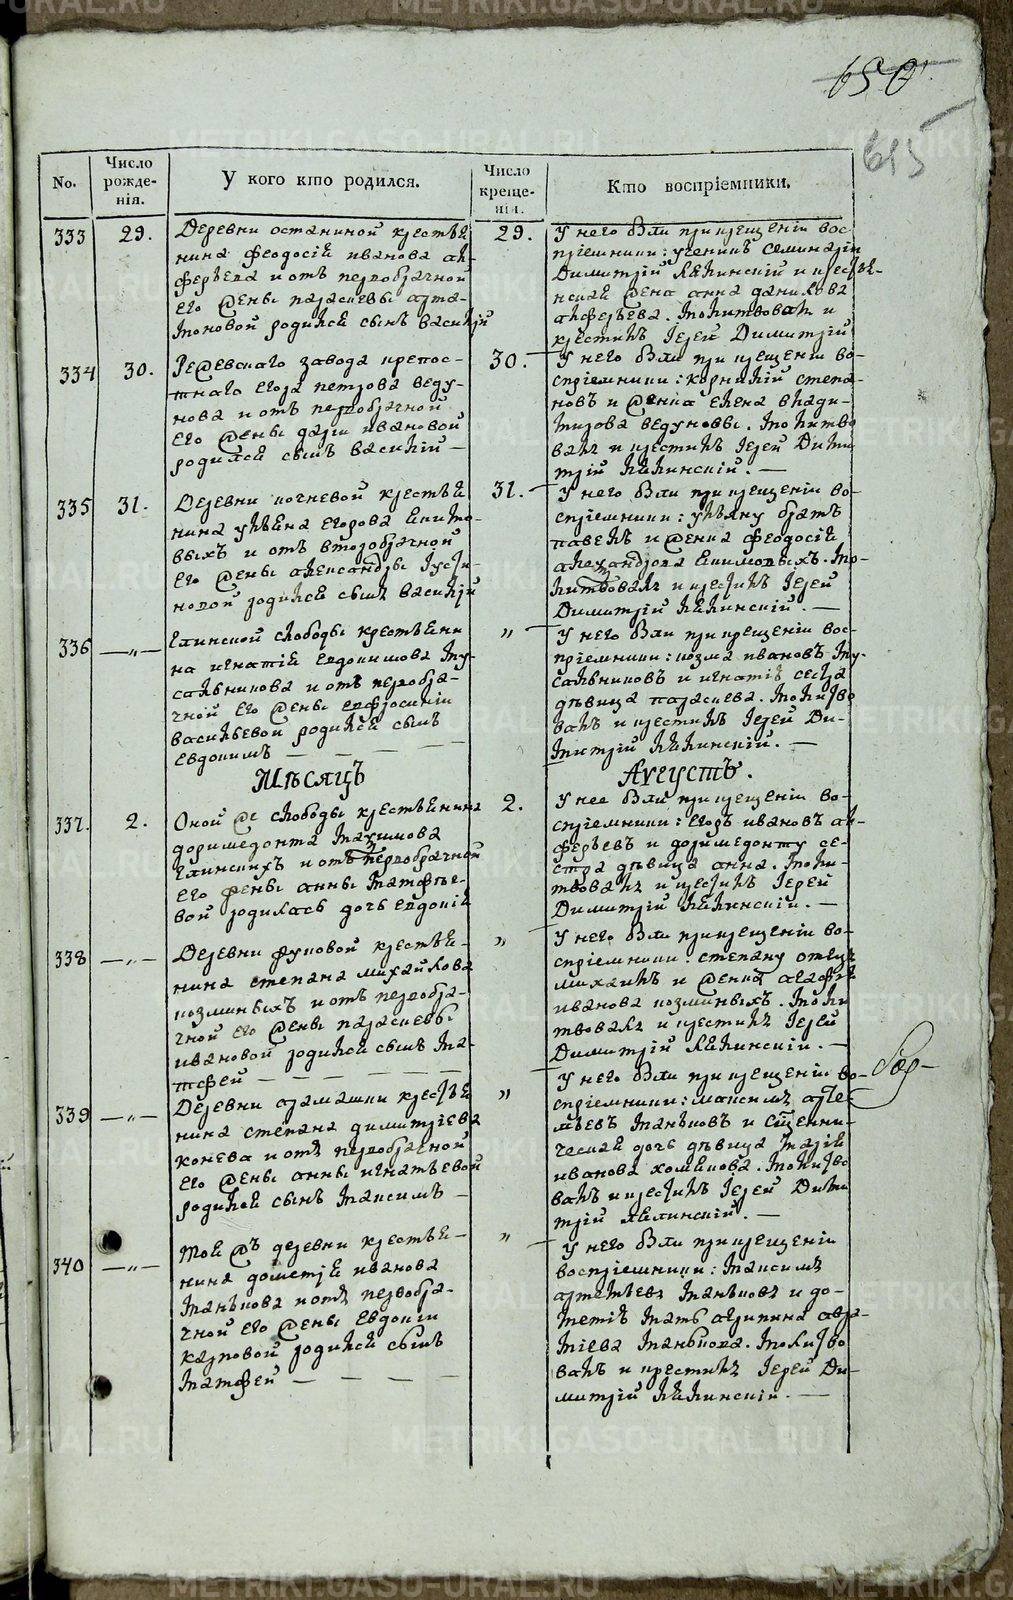 650
615
No.
Число рожде-нія.
У кого кто родился.
Число креще-нія.
Кто воспріемники.
333
29.
Деревни останиной крестья
нина феодосія иванова ал
ферьева и отъ первобрачной
его жены параскевы арта
моновой родился сынъ василій
29.
У него были при крещеніи вос
пріемники: ученикъ семинаріи
Димитрій Ляпинскій и крестья-
нская жена анна данилова
алферьева. Молитвовалъ и
крестилъ Іерей Димитрій
334
30.
Режевскаго завода крепос-
тнаго егора петрова веду-
нова и отъ первобрачной
его жены дарьи ивановой
родился сынъ василій —
30.
У него были при крещеніи во-
спріемники: корнилій степа-
новъ и женка елена влади-
мирова ведуновы. Молитво
валъ и крестилъ Іерей Дими
трій Ляпинскій. —
335
31.
Деревни кочневой крестья
нина ульяна егорова Екимо-
выхъ и отъ второбрачной
его жены александры Іусти-
новой родился сынъ василій
31.
У него были при крещеніи во-
спріемники: ульяну братъ
павелъ и женка феодосія
александрова Екимовыхъ. Мо-
литвовалъ и крестилъ Іерей
Димитрій Ляпинскій. —
336
— „ —
Глинской слободы крестьяни
на игнатія евдокимова Му-
сальникова и отъ первобра-
чной его жены евфросиніи
васильевой родился сынъ
евдокимъ — — —
„
У него были при крещеніи вос-
пріемники: козма ивановъ Му-
сальниковъ и игнатія сестра
дѣвица параскева. Молитво
валъ и крестилъ Іерей Ди-
митрій Ляпинскій. —
Мѣсяцъ
Августъ.
337.
2.
Оной же слободы крестьянина
доримедонта Максимова
Глинскихъ и отъ первобрачной
его жены анны Матфее-
вой родилась дочь евдокія
2.
У нее были при крещеніи во-
спріемники: егоръ ивановъ ал-
ферьевъ и доримедонту се-
стра дѣвица анна. Моли-
твовалъ и крестилъ Іерей
Димитрій Ляпинскій. —
338
— „ —
Деревни фуковой крестья-
нина степана михайлова
козминыхъ и отъ первобра-
чной его жены параскевы
ивановой родился сынъ Ма-
тфей — — — —
„
У него были при крещеніи во-
спріемники: степану отецъ
михаилъ и женка агафья
иванова козминыхъ. Моли
твовалъ и крестилъ Іерей
Димитрій Ляпинскій. —
339
— „ —
Деревни арамашки крестья
нина степана димитріева
конева и отъ первобрачной
его жены анны игнатьевой
родился сынъ Максимъ —
„
У него были при крещеніи во-
спріемники: максимъ арте-
мьевъ Маньковъ и сщенни-
ческая дочь дѣвица Марія
иванова хомякова. Молитво
валъ и крестилъ Іерей Дими
трій Ляпинскій. —
340
— „ —
Той жъ деревни крестья-
нина дометія иванова
Манькова и отъ первобра-
чной его жены евдокіи
карповой родился сынъ
Матфей — — — —
„
У него были при крещеніи
воспріемники: Максимъ
артемьевъ Маньковъ и до-
метія Мать акилина авра-
міева Манькова. Молитво
валъ и крестилъ Іерей Ди-
митрій Ляпинскій. —
METRIKI.GASO-URAL.RU